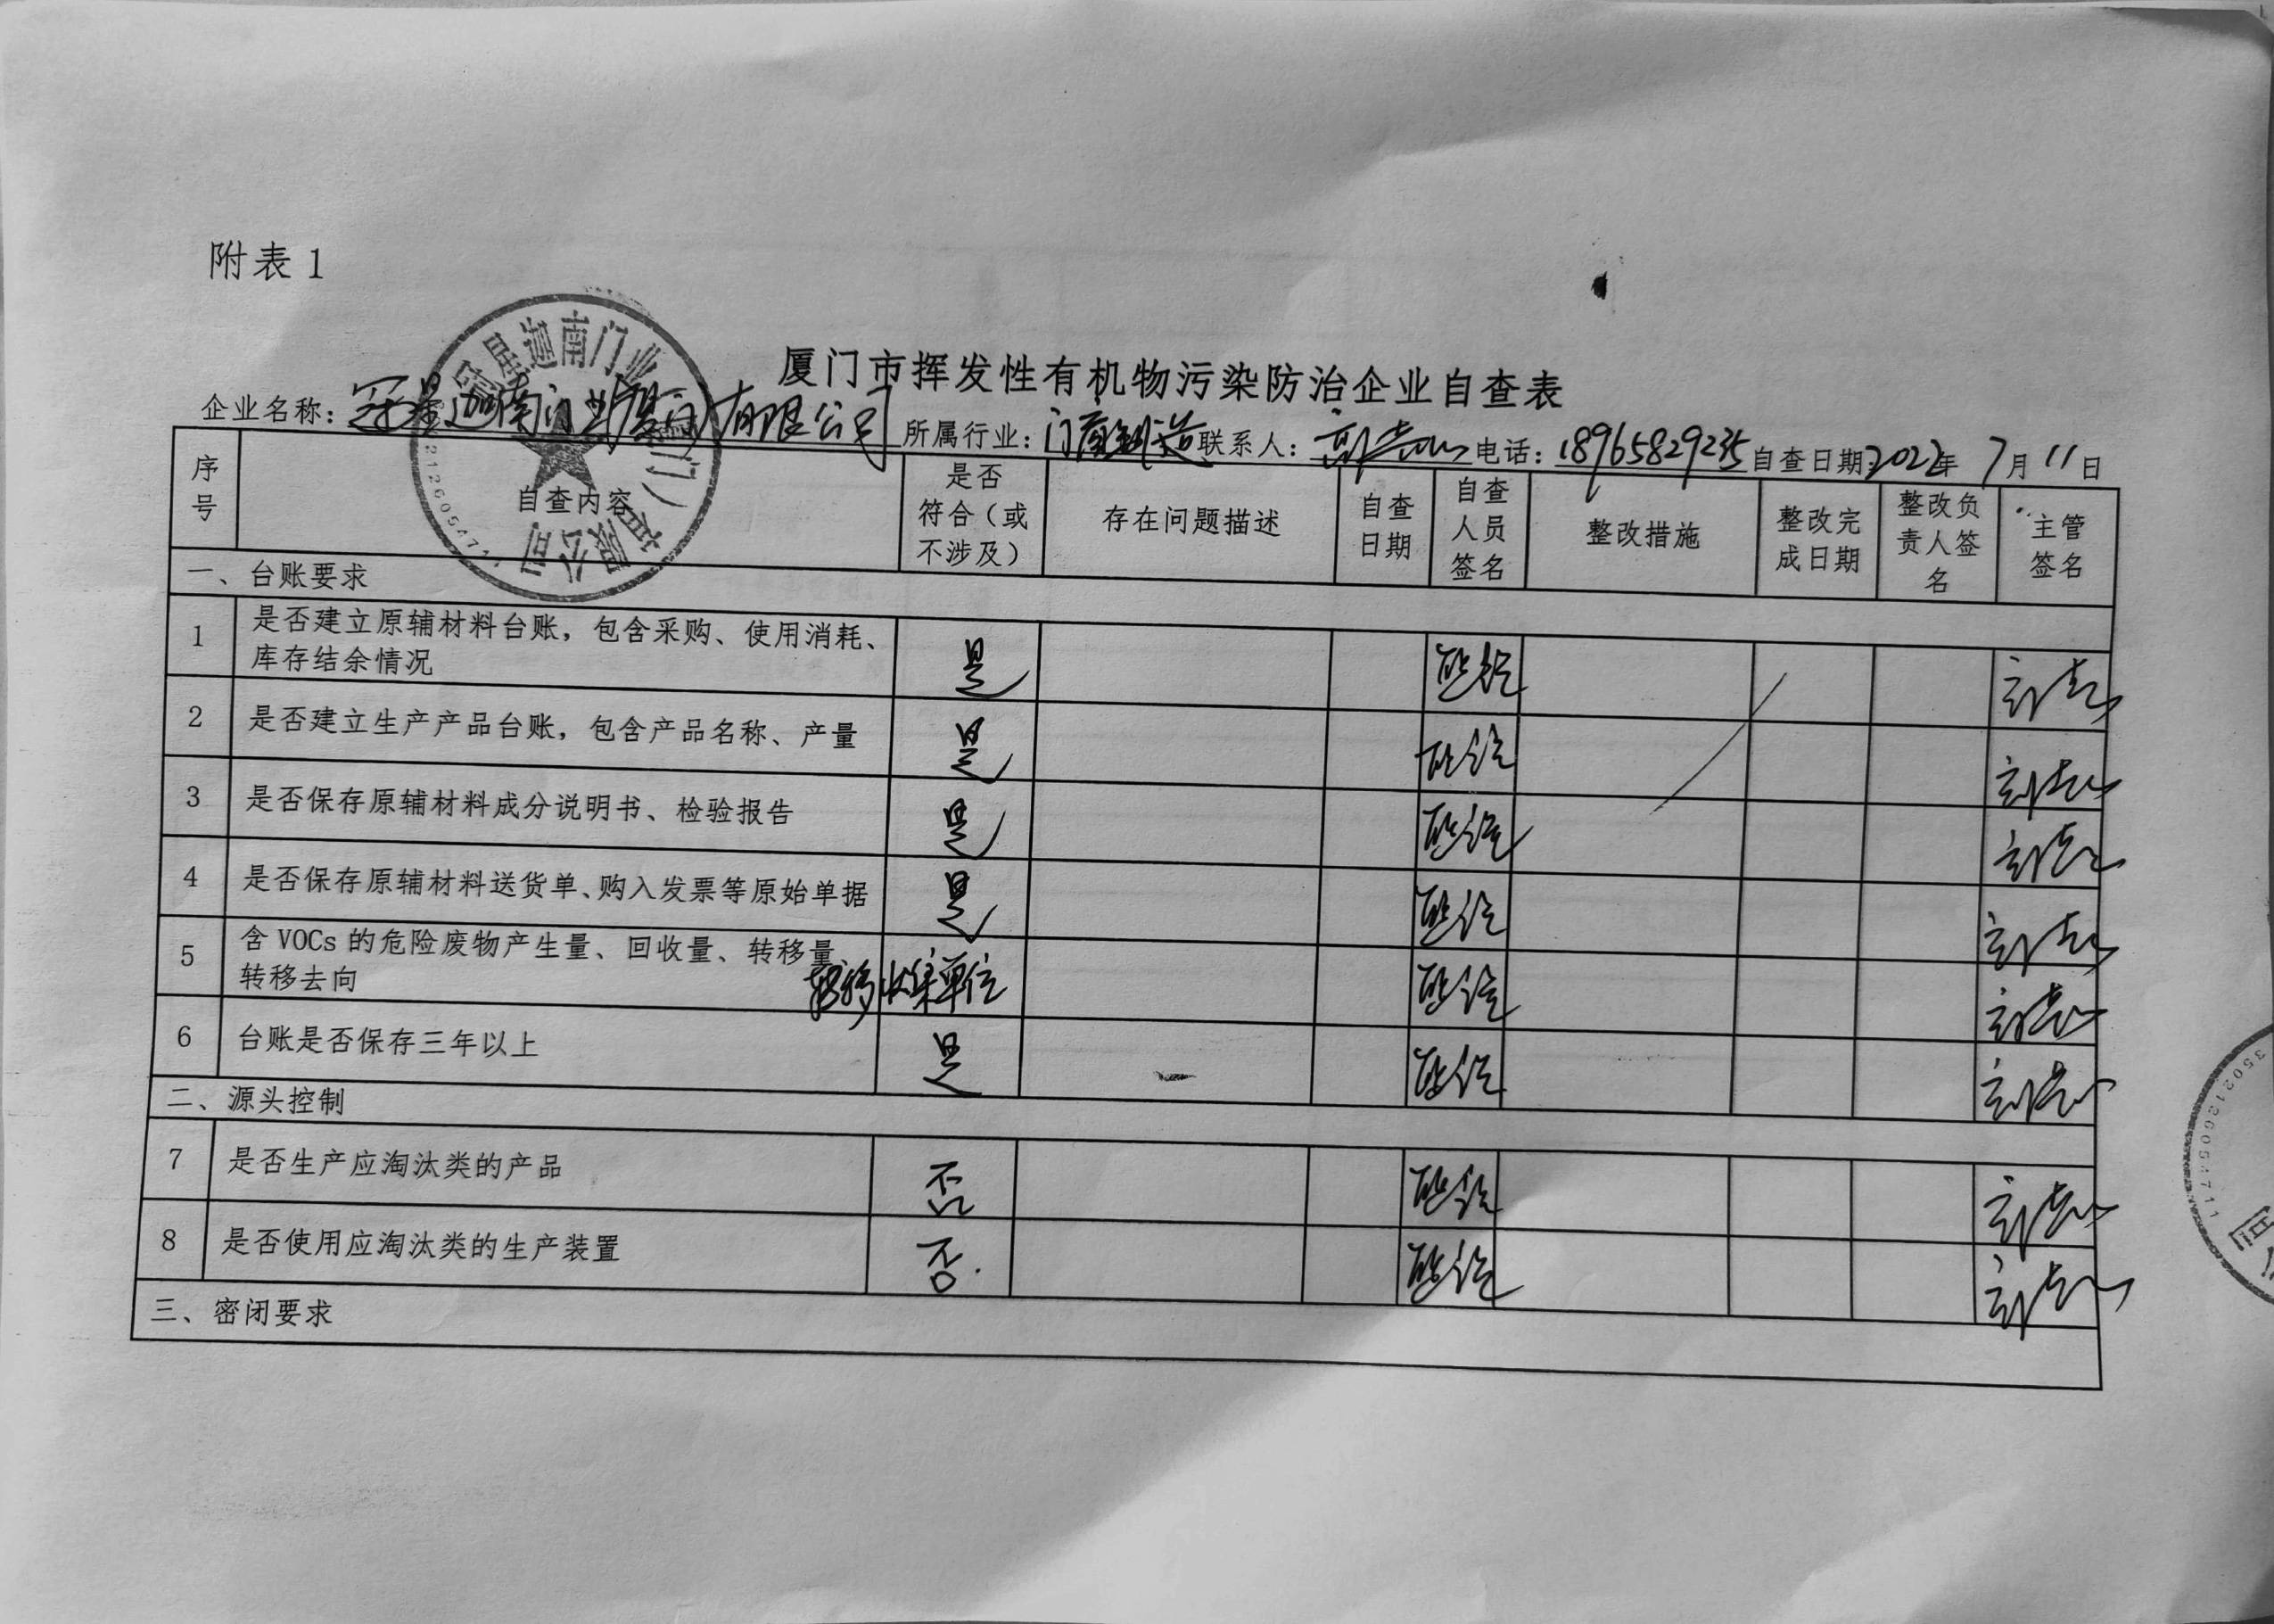 附表1
厦门市挥发性有机物污染防治企业自查表
企业名称：冠星迦南门业厦门有限公司 所属行业：门窗制造 联系人： 电话：18965829235 自查日期：2022年 7月 11日
序号 自查内容 是否符合（或不涉及） 存在问题描述 自查日期 自查人员签名 整改措施 整改完成日期 整改负责人签名 主管签名
一、台账要求
1 是否建立原辅材料台账，包含采购、使用消耗、库存结余情况 是
2 是否建立生产产品台账，包含产品名称、产量 是
3 是否保存原辅材料成分说明书、检验报告 是
4 是否保存原辅材料送货单、购入发票等原始单据 是
5 含VOCs的危险废物产生量、回收量、转移量、转移去向 转移收集单位
6 台账是否保存三年以上 是
二、源头控制
7 是否生产应淘汰类的产品 否
8 是否使用应淘汰类的生产装置 否
三、密闭要求